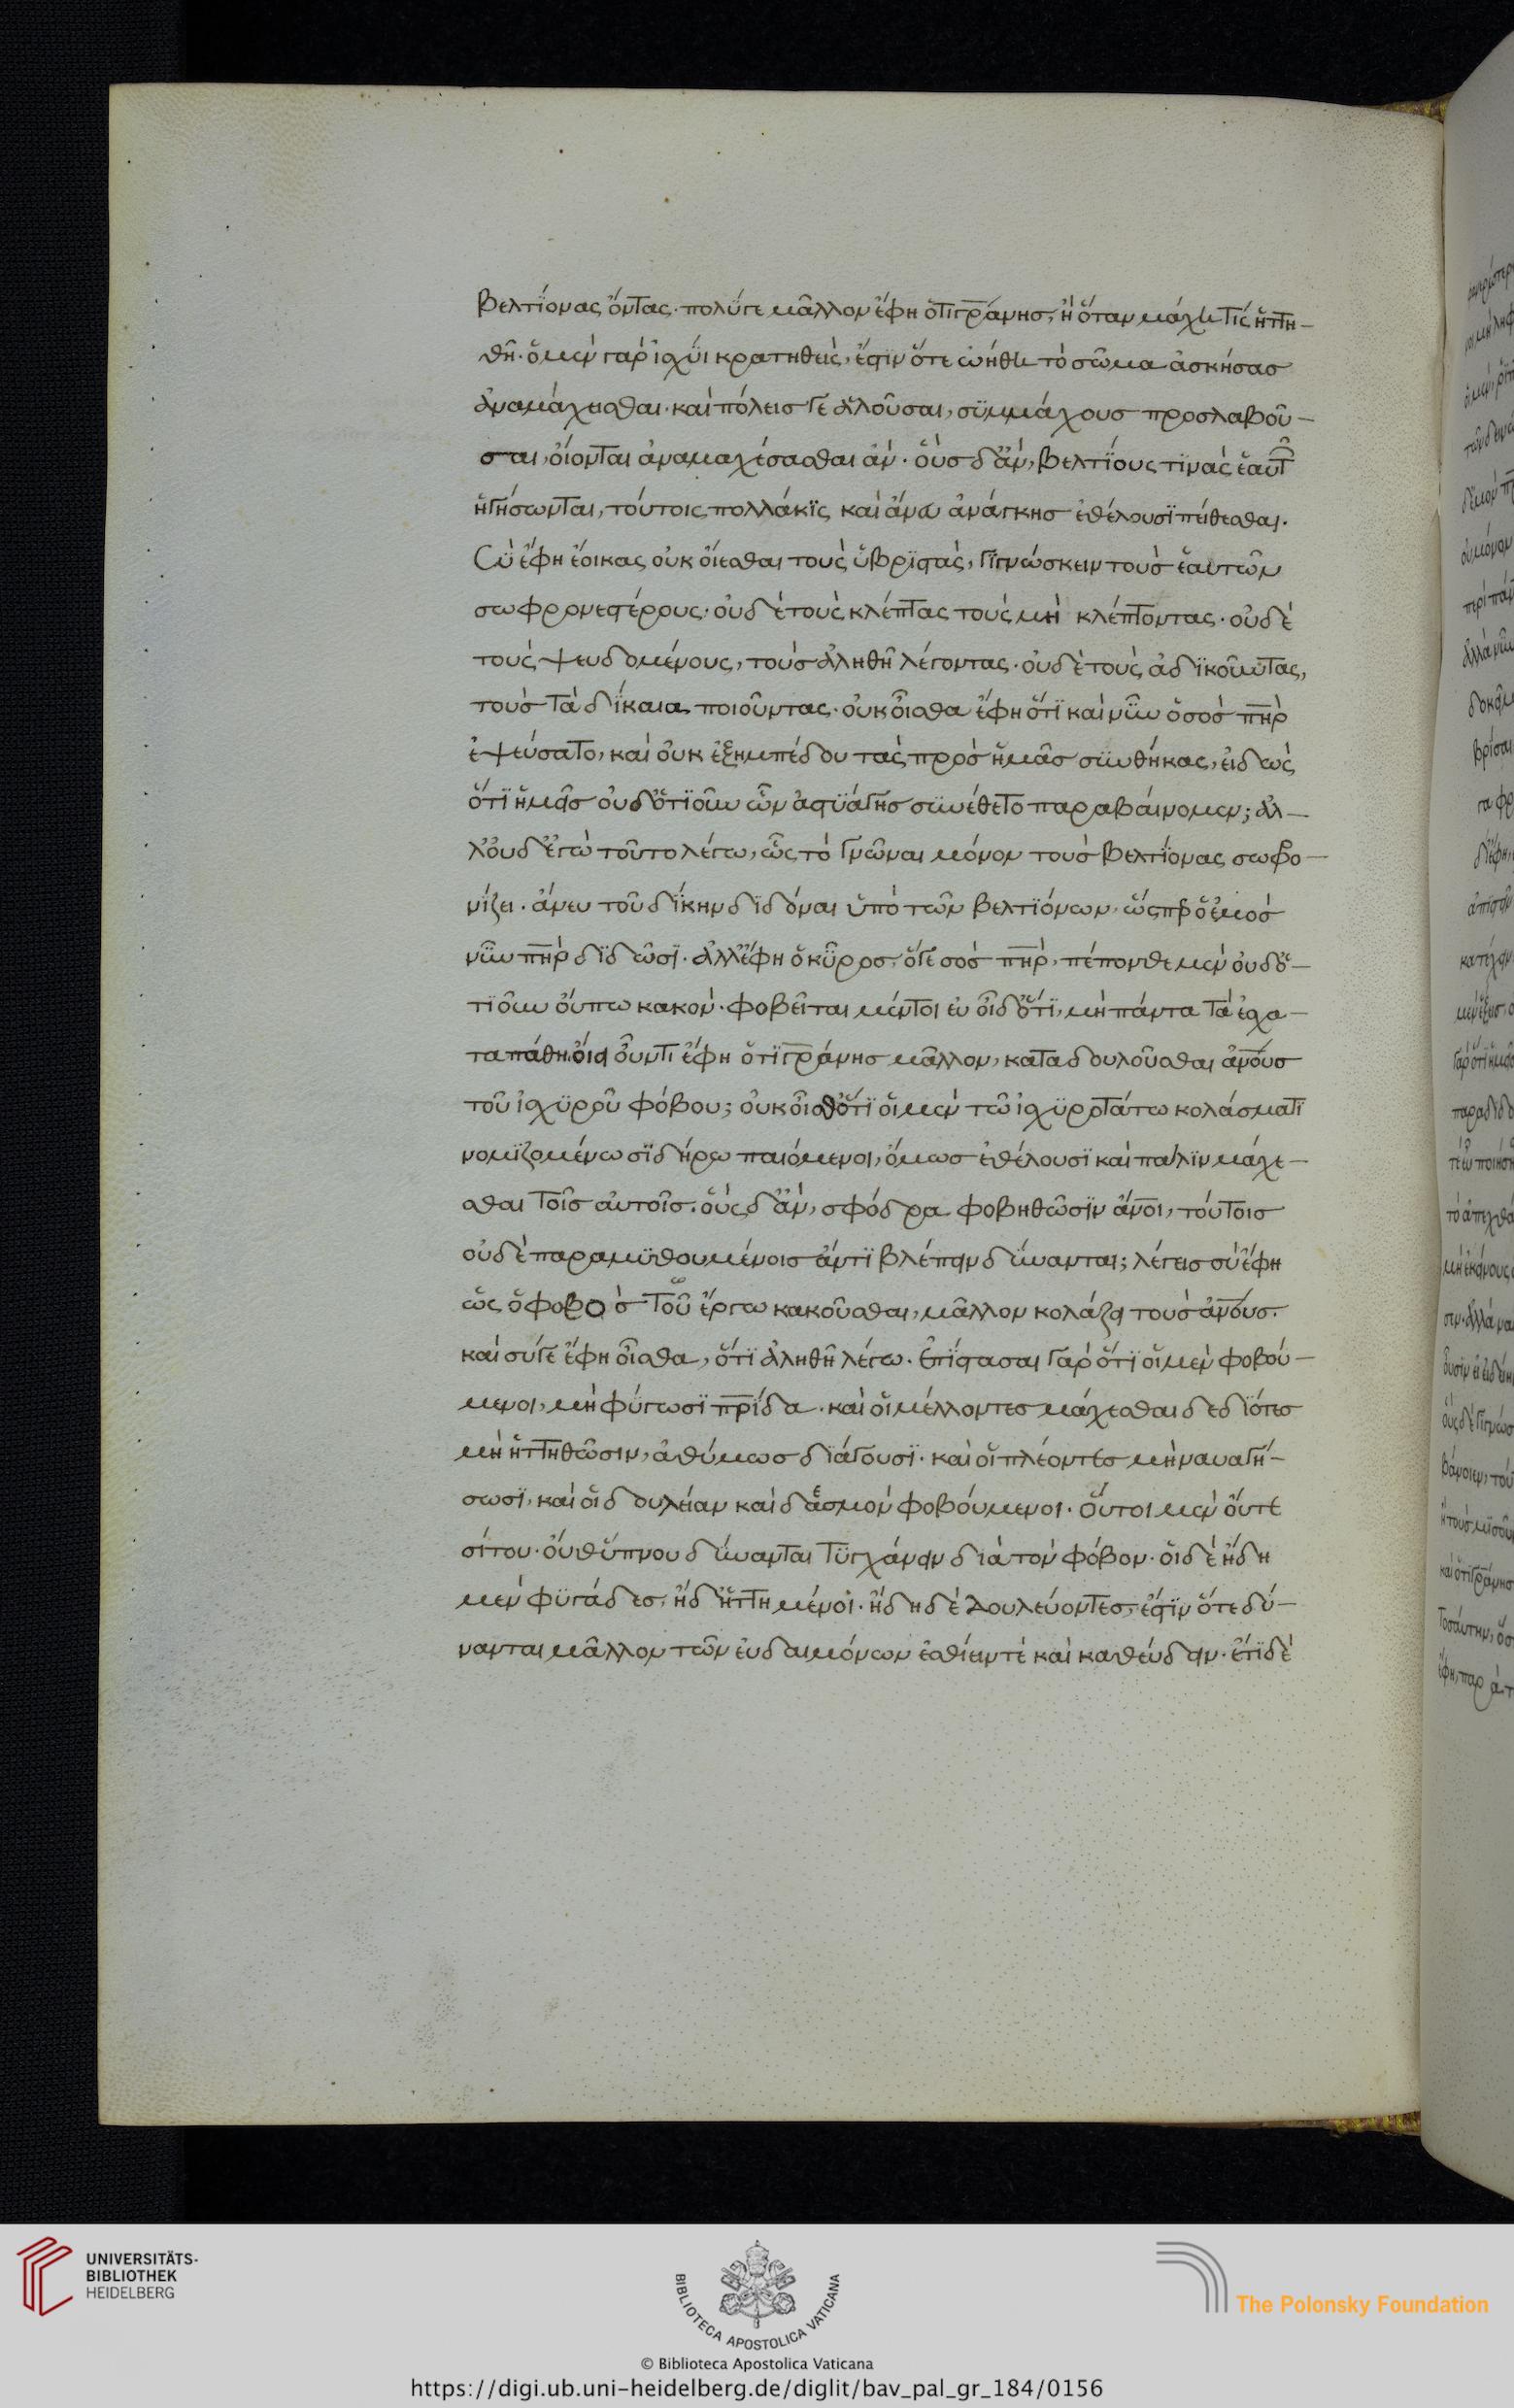 βελτίονας ὄντας· πολύγε μᾶλλον ἔφη ὁ τιγράνησ, ἢ ὅταν μάχῃ τίς ἡττη–
θῇ· ὁ μὲν γὰρ ἰσχύϊ κρατηθεὶς, ἔστιν ὅτε ὠήθη τὸ σῶμα ἀσκήσασ
ἀναμάχεισθαι· καὶ πόλεισ γε ἁλοῦσαι, συμμάχουσ προσλαβοῦ–
σαι, οἴονται ἀναμαχέσασθαι ἄν· οὓσ δ' ἂν, βελτίους τινὰς ἑαυτῶν
ἡγήσωνται, τούτοις πολλάκις καὶ ἄνευ ἀνάγκησ ἐθέλουσι πείθεσθαι.
Σὺ ἔφη ἔοικας οὐκ οἴεσθαι τοὺς ὑβριστὰς, γιγνώσκειν τοὺσ ἑαυτῶν
σωφρονεστέρους· οὐδὲ τοὺς κλέπτας τοὺς μὴ κλέπτοντας· οὐδὲ
τοὺς ψευδομένους, τοὺσ ἀληθῆ λέγοντας· οὐδὲ τοὺς ἀδικοῦντας,
τοὺσ τὰ δίκαια ποιοῦντας· οὐκ οἶσθα ἔφη ὅτι καὶ νῦν ὁ σὸσ πηρ
ἐψεύσατο, καὶ οὐκ ἐξημπέδου τὰς πρὸσ ἡμᾶσ συνθήκας, εἰδὼς
ὅτι ἡμεῖσ οὐδ' ὅτι οῦν ὧν ἀστυάγησ συνέθετο παραβαίνομεν; ἀλ–
λ' οὐδ' ἐγὼ τοῦτο λέγω, ὡς τὸ γνῶναι μόνον τοὺσ βελτίονας σωφρο–
νίζει· ἄνευ τοῦ δίκην διδόναι ὑπὸ τῶν βελτιόνων, ὥσπερ ὁ ἐμὸσ
νῦν πηρ διδῶσι· ἀλλ' ἔφη ὁ κῦροσ, ὅγε σὸσ πηρ, πέπονθε μὲν οὐδ' ὅ–
τι οῦν οὔπω κακόν· φοβεῖται μέντοι εὖ οἶδ' ὅτι, μὴ πάντα τὰ ἔσχα–
τα πάθη· οἴει οὖν τι ἔφη ὁ τιγράνησ μᾶλλον, καταδουλοῦσθαι ἀνουσ
τοῦ ἰσχυροῦ φόβου; οὐκ οἶσθ' ὅτι οἱ μὲν τῶ ἰσχυροτάτω κολάσματι
νομιζομένω σιδήρω παιόμενοι, ὅμωσ ἐθέλουσι καὶ πάλιν μάχε–
σθαι τοῖσ αὐτοῖσ· οὓς δ' ἂν, σφόδρα φοβηθῶσιν ἄνοι, τούτοισ
οὐδὲ παραμυθουμένοισ ἀντιβλέπειν δύνανται; λέγεισ σὺ ἔφη
ὡς ὁ φόβοσ τοῦ ἔργω κακοῦσθαι, μᾶλλον κολάζει τοὺσ ἀνουσ.
καὶ σύγε ἔφη οἶσθα, ὅτι ἀληθῆ λέγω· ἐπίστασαι γὰρ ὅτι οἱ μὲν φοβού–
μενοι, μὴ φύγωσι πρίδα· καὶ οἱ μέλλοντεσ μάχεσθαι δεδιότεσ
μὴ ἡττηθῶσιν, ἀθύμωσ διάγουσι· καὶ οἱ πλέοντεσ μὴ ναυαγή–
σωσι, καὶ οἱ δουλείαν καὶ δεσμὸν φοβούμενοι· οὗτοι μὲν οὔτε
σίτου· οὔθ' ὕπνου δύνανται τυγχάνειν διὰ τὸν φόβον· οἱ δὲ ἤδη
μὲν φυγάδεσ, ἤδ' ἡττημένοι· ἤδη δὲ δουλεύοντεσ, ἔστιν ὅτε δύ–
νανται μᾶλλον τῶν εὐδαιμόνων ἐσθίειντὲ καὶ καθεύδειν· ἔτι δὲ
UNIVERSITÄTS-
BIBLIOTHEK
HEIDELBERG
BIBLIOTECA APOSTOLICA VATICANA
The Polonsky Foundation
© Biblioteca Apostolica Vaticana
https://digi.ub.uni-heidelberg.de/diglit/bav_pal_gr_184/0156